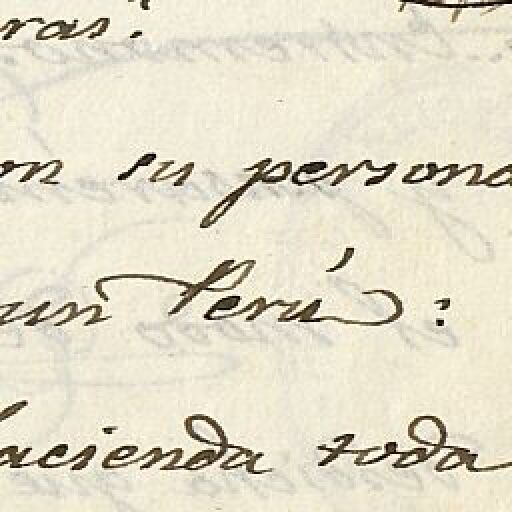 ras:
on su persona
un Perú:
hacienda toda